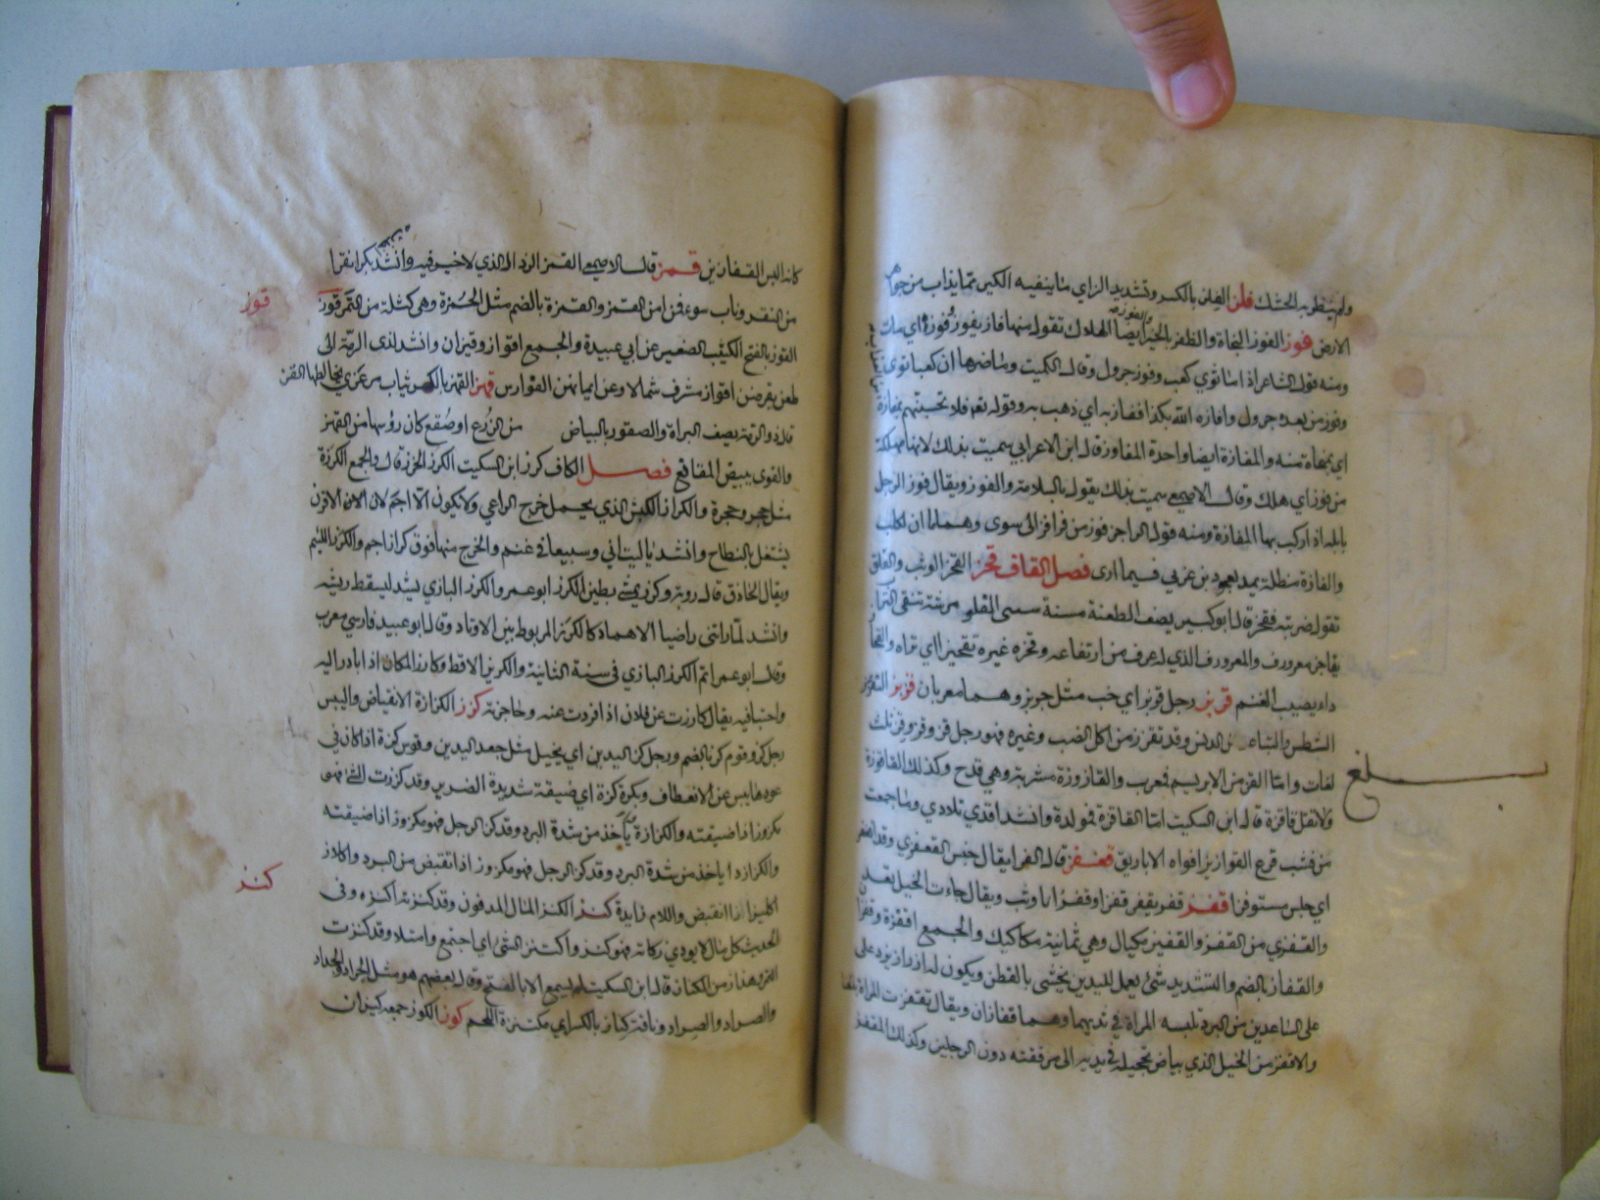 ولم يفطر به الخشك فلز الفلز بالكسر وتشديد الزاي ما ينفيه الكير مما يذاب من جواهر
الارض فوز الفوز النجاة والظفر بالخير والفوز ايضا الهلاك تقول منهما فاز يفوز فوزة اي مات
ومنه قول الشاعر اذا ما ثوى كعب وفوز جرول وقال الكميت وما ضرها ان كعبا ثوى
وفوز من بعده جرول وافازه الله بكذا ففاز به اي ذهب به وقوله تعم فلا تحسبنهم بمفازة
اي بمنجاة منه والمفازة ايضا واحدة المفاوز قال ابن الاعرابي سميت بذلك لانها مهلكة
من فوز اي هلك وقال الاصمعي سميت بذلك يقول بالسلامة والفوز ويقال فوز الرجل
بابله اذا ركب بها المفازة ومنه قول الراجز فوز من قراقر الى سوى وهما ماءان لكلب
والفازة مظلة يمد بعمود بن عربي فيما ارى فصل القاف قحز القحز الوثب والقلق
تقول ضربته فقحز قال ابو كبير يصف الطعنة مسنة سنن الفلو مرشة تنفي التراب
بقاحز معرورف والمعرورف الذي له عرف من ارتفاعه وقحزه غيره تقحيزا اي نزاه والقحاز
داء يصيب الغنم قربز رجل قربز اي خب مثل جربز وهما معربان قزز التقزز
التنطس والتباعد من الدنس وقد تقزز من اكل الضب وغيره فهو رجل قز وقز وقز ثلث
لغات واما القز من الابريسم فمعرب والقازوزة مشربة وهي قدح وكذلك القاقوزة
بلغ
ولا تقل قاقزة قال ابن السكيت اما القاقزة فمولدة وانشد افنى تلادي وما جمعت
من نشب قرع القوازيز افواه الاباريق قعفز قال الفرا يقال جلس القعفزى وقد اقعنفز
اي جلس مستوفزا قفز قفز يقفز قفزا وقفزانا وثب ويقال جاءت الخيل تعدو
والقفزى من القفز والقفيز مكيال وهي ثمانية مكاكيك والجمع اقفزة وقفزان
والقفاز بالضم والتشديد شئ يعمل لليدين يحشى بالقطن ويكون له ازرار يزر على
على الساعدين من البرد تلبسه المراة في يديها وهما قفازان ويقال تقفزت المراة بالحنا
والاقفز من الخيل الذي بياض تحجيله في يديه الى مرفقيه دون الرجلين وكذلك المقفز
كانه البس القفازين قمز قال الاصمعي القمز الرذال الذي لا خير فيه وانشد بكرا نقزا
من النقز وناب سوء قمزا من القمز والقمزة بالضم مثل الجمزة وهي كتلة من التمر قوز
قوز
القوز بالفتح الكثيب الصغير عن ابي عبيدة والجمع اقواز وقيزان وانشد لذي الرمة الى
ظعن يقرضن اقواز مشرف شمالا وعن ايمانهن الفوارس قهز القهز بالكسر ثياب مرعزى يخالطها القز
قال ذو الرمة يصف البزاة والصقور بالبياض من الزرق او صقع كان رؤسها من القهز
والقوهي بيض المقانع فصل الكاف كرز ابن السكيت الكرز الخرج قال والجمع الكرزة
مثل جحر وجحرة والكراز الكبش الذي يحمل خرج الراعي ولا يكون الا اجم لان الاقرن
يشتغل بالنطاح وانشد يا ليت اني وسبيعا في غنم والخرج منها فوق كراز اجم والكرز اللئيم
ويقال الحاذق قال رؤبة وكرز يمشي بطين الكرز ابو عمرو الكرز البازي يشد ليسقط ريشه
وانشد لما راتني راضيا بالاهماد كالكرز المربوط بين الاوتاد وقال ابو عبيد فارسي معرب
وقال ابو عمر اتم الكرز البازي في سنته الثانية والكريز الاقط وكارز المكان اذا بادر اليه
واختبا فيه يقال كارزت عن فلان اذا فررت عنه وحاجزته كزز الكزازة الانقباض واليبس
رجل كز وقوم كز بالضم ورجل كز اليدين اي بخيل مثل جعد اليدين وقوس كزة اذا كان في
عودها يبس عن الانعطاف وبكرة كزة اي ضيقة شديدة الصرير وقد كززت الشئ فهو
مكزوز اذا ضيقته والكزازة ياخذ من شدة البرد وقد كز الرجل فهو مكزوز اذا ضيقته
والكزاز داء ياخذ من شدة البرد وقد كز الرجل فهو مكزوز اذا تقبض من البرد واكلاز
كنز
اكليزازا انقبض واللام زايدة كنز الكنز المال المدفون وقد كنزته اكنزه وفي
الحديث كل مال لا يودى زكاته فهو كنز واكتنز الشئ اي اجتمع وامتلا وقد كنزت
التمر وهذا زمن الكناز قال ابن السكيت لم يسمع الا بالفتح وقال بعضهم هو مثل الجداد والجذاذ
والصرام والصرام وناقة كناز بالكسر اي مكتنزة اللحم كوز الكوز جمعه كيزان